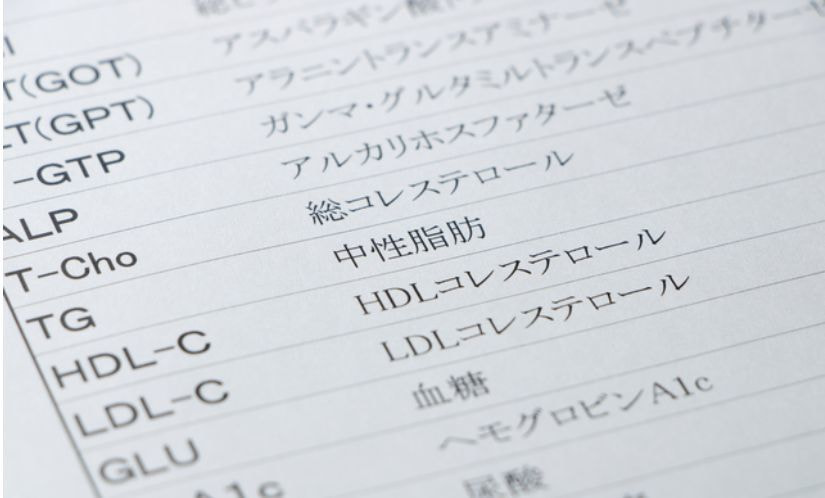 総ビ
T(GOT) アスパラギン酸
LT(GPT) アラニントランスアミナーゼ
-GTP ガンマ・グルタミルトランスペプチターゼ
ALP アルカリホスファターゼ
T-Cho 総コレステロール
TG 中性脂肪
HDL-C HDLコレステロール
LDL-C LDLコレステロール
GLU 血糖
A1c ヘモグロビンA1c
尿酸